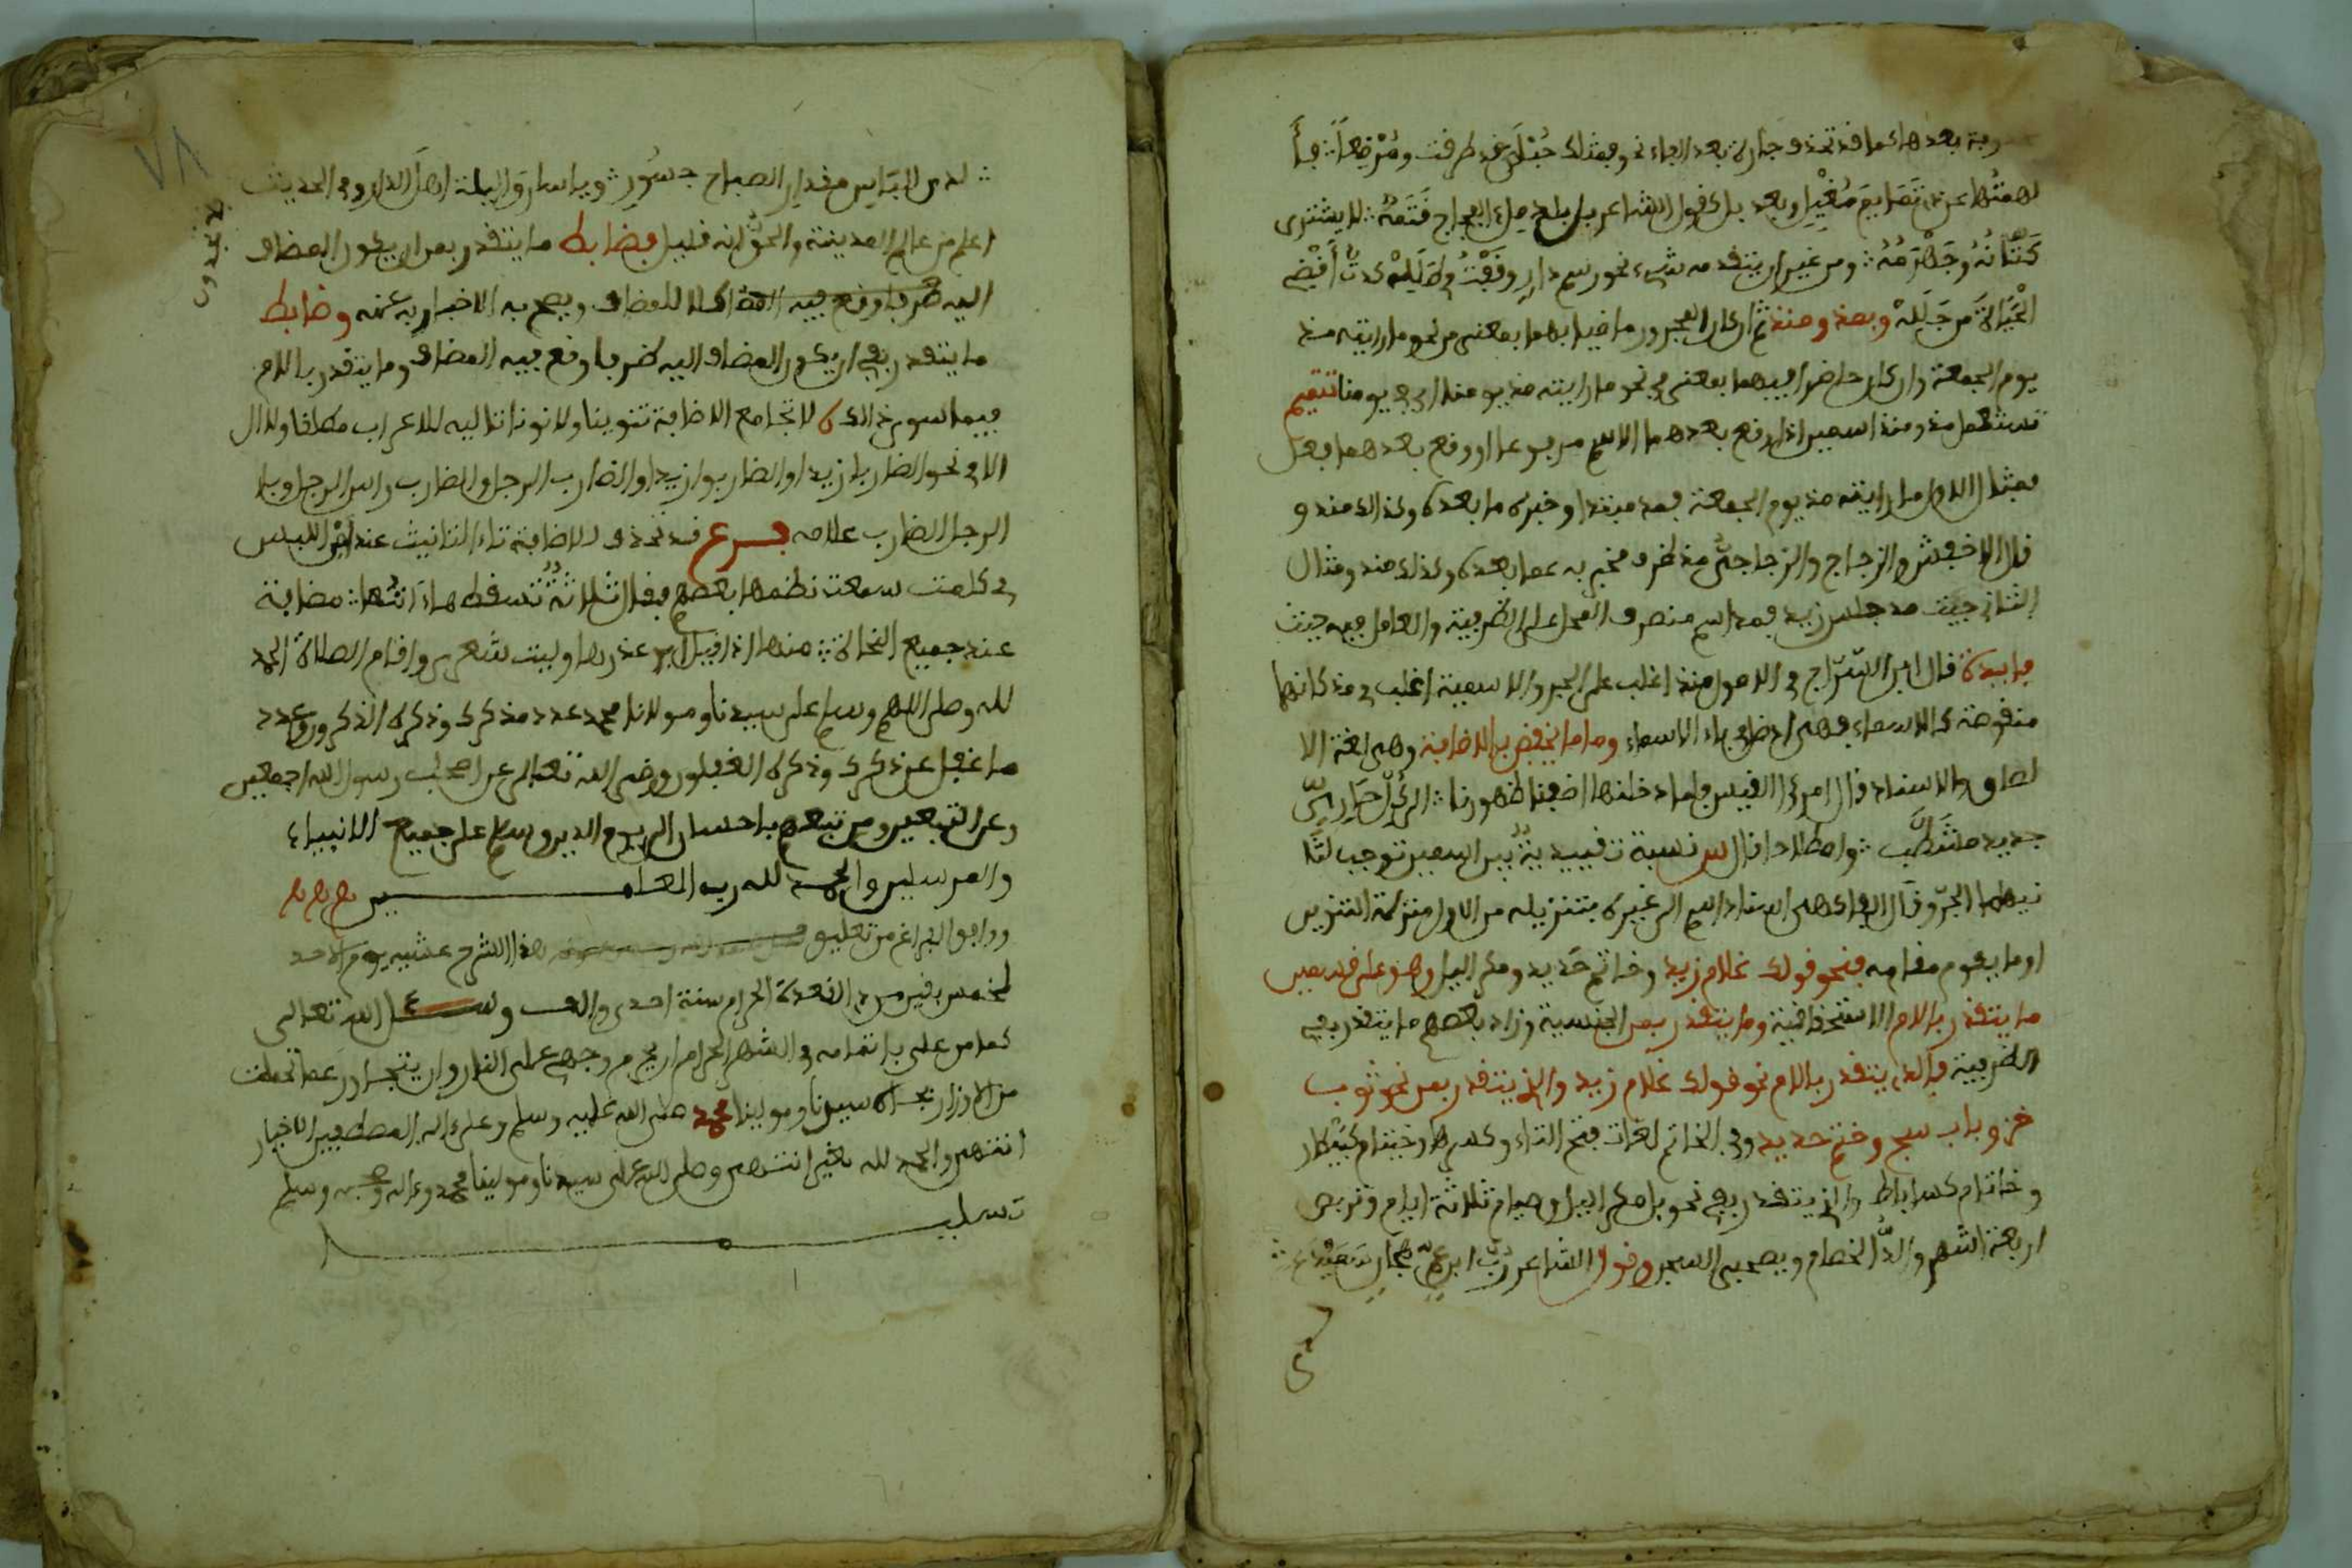 بعدها كما قد تحذف جارة بعد الفاء نحو فمثلك حبلى قد طرقت ومرضعا فأ
لهيتها عن ذي تمايم مغيل وبعد بل كقول الشاعر بل بلد ملء الفجاج قتمه لا يشترى
كتانه وجهرمه ومن غير ان يتقدمه شيء نحو رسم دار وقفت في طلله كدت أقضي
الحياة من جلله وبمذ ومنذ ثم ان كان المجرور ماضيا بهما بمعنى من نحو ما رايته مذ
يوم الجمعة وان كان حاضرا فبهما بمعنى في نحو ما رايته مذ يومنا اي في يومنا تتميم
تستعمل مذ ومنذ اسمين اذا وقع بعدهما الاسم مرفوعا او وقع بعدهما فعل
فمثال الاول ما رايته مذ يوم الجمعة فمذ مبتدا وخبره ما بعده وكذلك منذ و
قال الاخفش والزجاج والزجاجي مذ ظرف مخبر به عما بعده وكذلك منذ ومثال
الثاني جيت مذ جلس زيد فمذ اسم منصوب المحل على الظرفية والعامل فيه جيت
فايدة قال ابن السراج في الاصول منذ اغلب على الجر والاسمية اغلب في مذ كانها
منقوصة كالاسماء فهي ادخل في باب الاسماء واما ما يخفض بالاضافة وهي لغة الا
لصاق والاسناد قال امرئ القيس فلما دخلناه اضفنا ظهورنا الى كل حاري
جديد مشطب واصطلاحا قال س نسبة تقييدية بين اسمين توجب لثا
نيهما الجر وقال الفاكهي اسناد اسم الى غيره بتنزيله من الاول منزلة التنوين
او ما يقوم مقامه فنحو قولك غلام زيد وخاتم حديد ومكر اليل وهو على قسمين
ما يتقدر باللام الاستحقاقية وما يتقدر بمن الجنسية وزاد بعضهم ما يتقدر بفي
الظرفية فالذي يتقدر باللام نحو قولك غلام زيد والذي يتقدر بمن نحو ثوب
خز وباب ساج وخاتم حديد وفي الخاتم لغات فتح التاء وكسرها وخيتام كبيطار
وخاتام كساباط والذي يتقدر بفي نحو بل مكر اليل وصيام ثلاثة ايام وتربص
اربعة اشهر والد الخصام ويصحبي السجن وقول الشاعر رب ابن عم
لدى
اعلم من عالم المدينة والحق انه قليل فضابط ما يتقدر بمن ان يكون المضاف
اليه كلا للمضاف ويصح به الاخبار به عنه وضابط
ما يتقدر بفي ان يكون المضاف اليه ظرفا وقع فيه المضاف وما يتقدر باللام
فيما سوى ذلك لا تجامع الاضافة تنوينا ولا نونا تاليه للاعراب مطلقا ولا ال
الا في نحو الضاربا زيد او الضاربوا زيد او الضارب الرجل او الضارب راس الرجل وبا
الرجل الضارب غلامه فرع قد تحذف للاضافة تاء التانيث عند امن اللبس
في كلمت سمعت نظمها بعضهم فقال ثلاثة تسقط هاءاتها مضافة
عند جميع النحاة منها اذا قيل ابو عذرها وليت شعري واقام الصلاة الحمد
لله وصلى اللهم وسلم على سيدنا ومولانا محمد عدد من ذكرك وذكره الذكرون وعدد
ما غفل عن ذكرك وذكره الغفلون ورضي الله تعالى عن اصحاب رسول الله اجمعين
وعن التبعين ومن تبعهم باحسان الى يوم الدين وسلم على جميع الانبياء
والمرسلين والحمد لله رب العالمين
ووافق الفراغ من تعليق هذا الشرح عشيه يوم الاحد
لخمس بقين من ذي القعدة الحرام سنة احدى والف ونسئل الله تعالى
كما من علي باتمامه في الشهر الحرام ان يحرم وجهي على النار وان يتجاوز عما تحملت
من الاوزار بجاه سيدنا ومولينا محمد صلى الله عليه وسلم وعلى اله المصطفين الاخيار
انتهى والحمد لله بغير انتهى وصلى الله على سيدنا ومولينا محمد وعلى اله وصحبه وسلم
تسليما